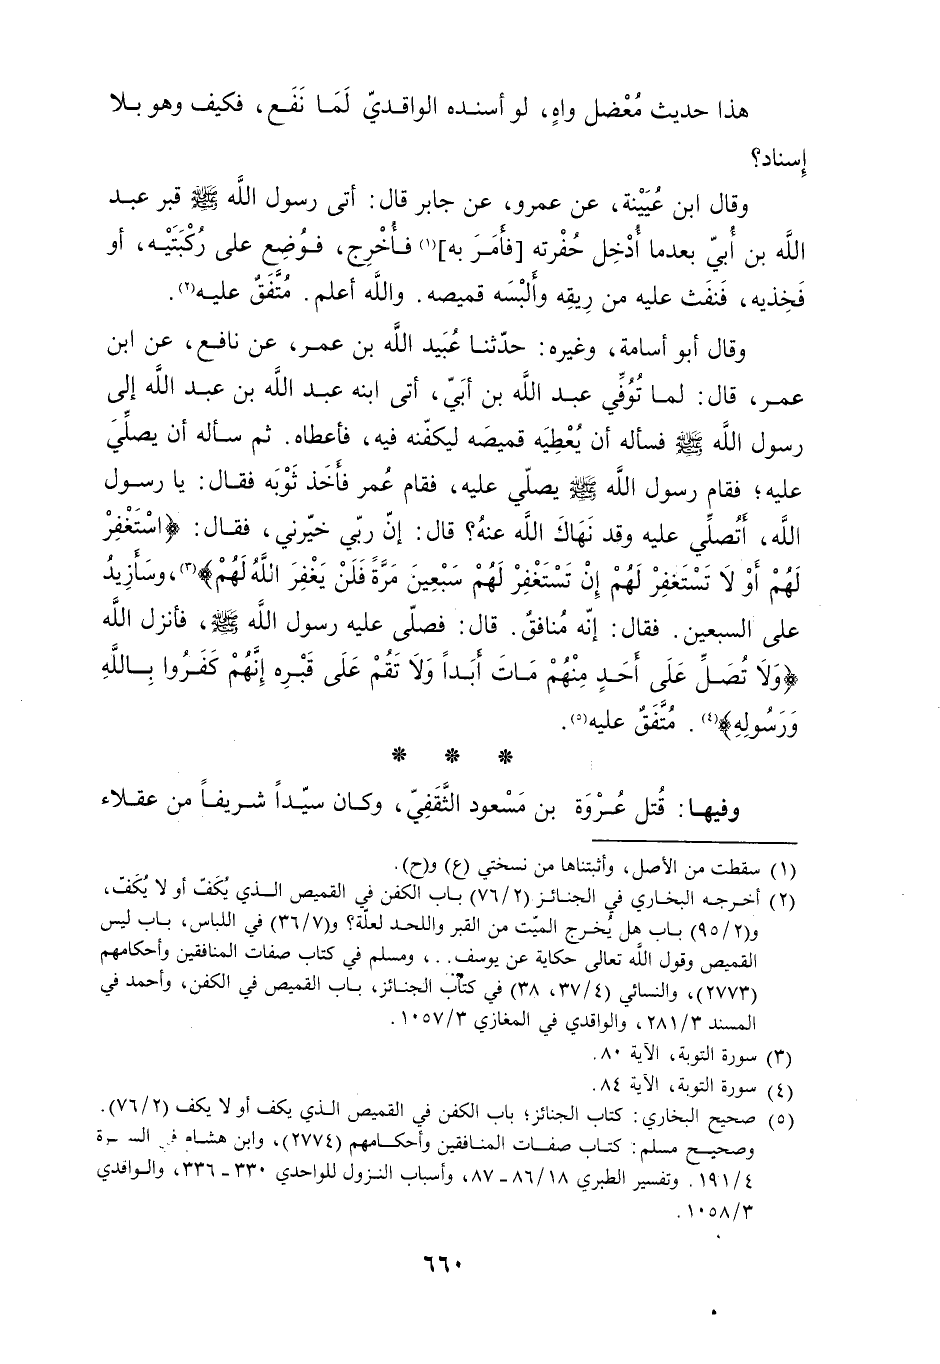 هذا حديث مُعْضل واهٍ، لو أسنده الواقديّ لَمَا نَفَع، فكيف وهو بلا
إسناد؟
وقال ابن عُيَيْنة، عن عمرو، عن جابر قال: أتى رسول اللَّه ﷺ قبر عبد
اللَّه بن أُبيّ بعدما أُدْخِل حُفْرته [فأَمَرَ به](١) فأُخْرِج، فوُضِع على رُكْبَتَيْه، أو
فَخِذيه، فَنَفَث عليه من رِيقِه وأَلْبَسَه قميصه. واللَّه أعلم. مُتَّفَقٌ عليه(٢).
وقال أبو أسامة، وغيره: حدّثنا عُبَيد اللَّه بن عمر، عن نافع، عن ابن
عمر، قال: لما تُوُفِّي عبد اللَّه بن أبَيّ، أتى ابنه عبد اللَّه بن عبد اللَّه إلى
رسول اللَّه ﷺ فسأله أن يُعْطِيَه قميصَه ليكفّنه فيه، فأعطاه. ثم سأله أن يصلِّيَ
عليه؛ فقام رسول اللَّه ﷺ يصلّي عليه، فقام عُمر فأَخَذ ثَوْبَه فقال: يا رسول
اللَّه، أَتُصلِّي عليه وقد نَهَاكَ اللَّه عنهُ؟ قال: إنّ ربّي خيّرني، فقال: ﴿اسْتَغْفِرْ
لَهُمْ أَوْ لَا تَسْتَغفِرْ لَهُمْ إِنْ تَسْتَغْفِرْ لَهُمْ سَبْعِينَ مَرَّةً فَلَنْ يَغْفِرَ اللَّهُ لَهُمْ﴾(٣)، وسَأَزِيدُ
على السبعين. فقال: إنّه مُنافقٌ. قال: فصلّى عليه رسول اللَّه ﷺ، فأنزل اللَّه
﴿وَلَا تُصَلِّ عَلَى أَحَدٍ مِنْهُمْ مَاتَ أَبَداً وَلَا تَقُمْ عَلَى قَبْرِهِ إِنَّهُمْ كَفَرُوا بِاللَّهِ
وَرَسُولِهِ﴾(٤). مُتَّفَقٌ عليه(٥).
* * *
وفيها: قُتل عُرْوَة بن مَسْعود الثَّقَفِيّ، وكان سيّداً شريفاً من عقلاء
(١) سقطت من الأصل، وأثبتناها من نسختي (ع) و(ح).
(٢) أخرجه البخاري في الجنائز (٧٦/٢) باب الكفن في القميص الذي يُكَفّ أو لا يُكَفّ،
و(٩٥/٢) باب هل يُخرج الميّت من القبر واللحد لعلّة؟ و(٣٦/٧) في اللباس، باب ليس
القميص وقول اللَّه تعالى حكاية عن يوسف..، ومسلم في كتاب صفات المنافقين وأحكامهم
(٢٧٧٣)، والنسائي (٣٧/٤، ٣٨) في كتاب الجنائز، باب القميص في الكفن، وأحمد في
المسند ٢٨١/٣، والواقدي في المغازي ١٠٥٧/٣.
(٣) سورة التوبة، الآية ٨٠.
(٤) سورة التوبة، الآية ٨٤.
(٥) صحيح البخاري: كتاب الجنائز؛ باب الكفن في القميص الذي يكف أو لا يكف (٧٦/٢).
وصحيح مسلم: كتاب صفات المنافقين وأحكامهم (٢٧٧٤)، وابن هشام في
١٩١/٤. وتفسير الطبري ٨٦/١٨ ـ ٨٧، وأسباب النزول للواحدي ٣٣٠ ـ ٣٣٦، والواقدي
١٠٥٨/٣.
٦٦٠